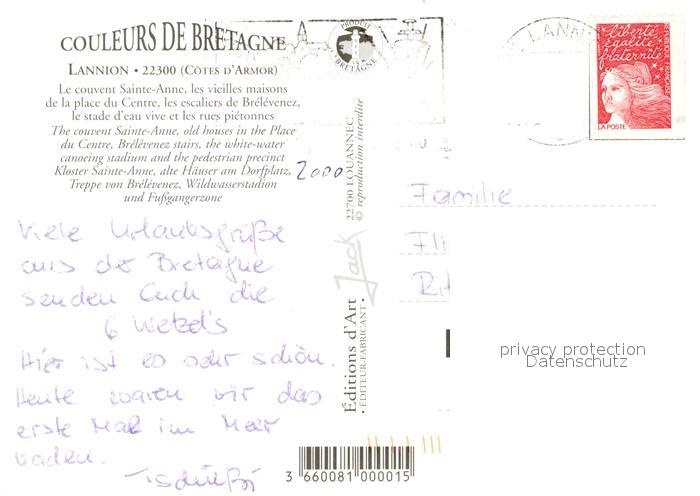 COULEURS DE BRETAGNE
LANNION • 22300 (CÔTES D'ARMOR)
Le couvent Sainte-Anne, les vieilles maisons
de la place du Centre, les escaliers de Brélévenez,
le stade d'eau vive et les rues piétonnes
The couvent Sainte-Anne, old houses in the Place
du Centre, Brélévenez stairs, the white-water
canoeing stadium and the pedestrian precinct
Kloster Sainte-Anne, alte Häuser am Dorfplatz,
Treppe von Brélévenez, Wildwasserstadion
und Fußgangerzone
2000
Viele Urlaubsgrüße
aus der Bretagne
senden Euch die
6 Wetzel's
Hier ist es sehr schön.
Heute waren wir das
erste Mal im Meer
baden.
Tschüßi
PRODUIT
EN
BRETAGNE
22700 LOUANNEC
© reproduction interdite
Jack
Éditions d'Art
• ÉDITEUR-FABRICANT •
3 660081 000015
LANNI
liberté
égalité
fraternité
RÉPUBLIQUE FRANÇAISE
LA POSTE
Familie
Fli
Rit
privacy protection
Datenschutz